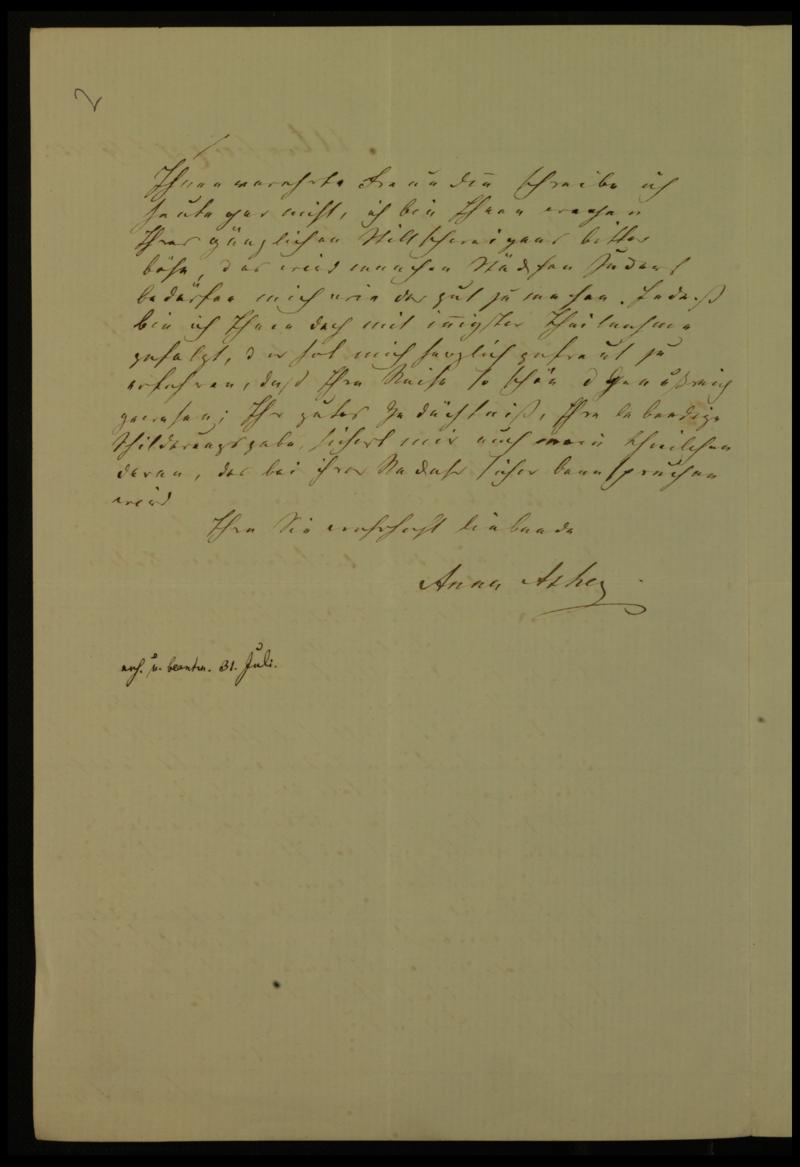 2
Ihnen verehrte Freundin schreibe ich
heute gar nicht, ich bin Ihnen wegen
Ihres gänzlichen Stillschweigens bitter
böse, des wird manchen Städchen
bedürfen mich wieder gut zu machen. Indeß
bin ich Ihnen doch mit innigster Theilnahme
gefolgt, d es hat mich herzlich gefreut zu
erfahren, daß Ihre Reise so schön d Genußreich
gewesen; Ihr gutes Gedächtniß, Ihre lebendige
Schilderungsgabe, sichert mir auch mein theilchen
daran, das bei ihrer Rückkehr sicher beanspruchen
wird
Ihre Sie wahrhaft liebende
Anna Asher
erh. u. beantw. 31. Juli.